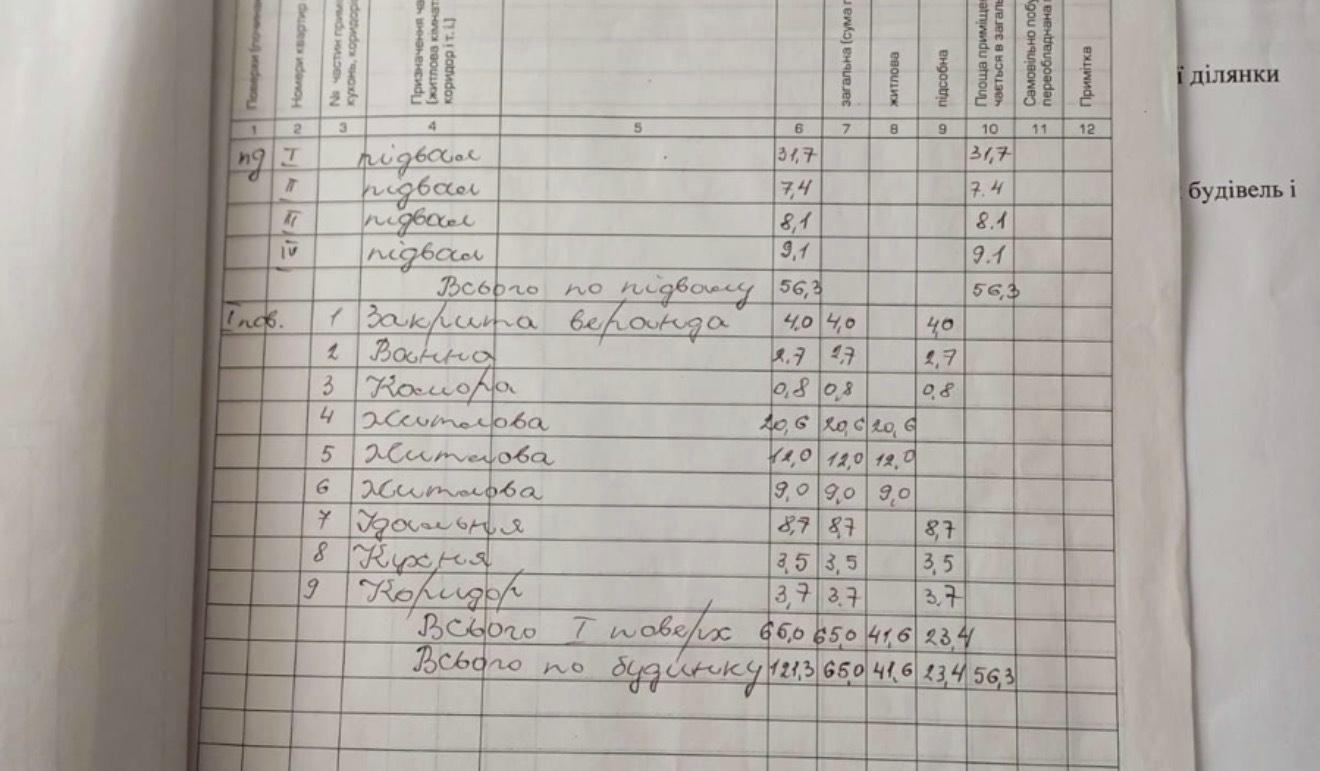 Поверхи (почина
Номери квартир
№ частин примі
кухонь, коридорі
Призначення ча
(житлова кімнат
коридор і т. і.)
загальна (сума г
житлова
підсобна
Площа приміщен
чається в загаль
Самовільно побу
переобладнана п
Примітка
ї ділянки
будівель і
1 2 3 4 5 6 7 8 9 10 11 12
пд I підвал 31,7 31,7
II підвал 7,4 7.4
III підвал 8,1 8.1
IV підвал 9,1 9.1
Всього по підвалу 56,3 56,3
I пов. 1 Закрита веранда 4,0 4,0 4,0
2 Ванна 2.7 2,7 2,7
3 Комора 0,8 0,8 0,8
4 Житлова 20,6 20,6 20,6
5 Житлова 12,0 12,0 12,0
6 Житлова 9,0 9,0 9,0
7 Їдальня 8,7 8,7 8,7
8 Кухня 3,5 3,5 3,5
9 Коридор 3,7 3.7 3.7
Всього I поверх 65,0 65,0 41,6 23,4
Всього по будинку 121,3 65,0 41,6 23,4 56,3